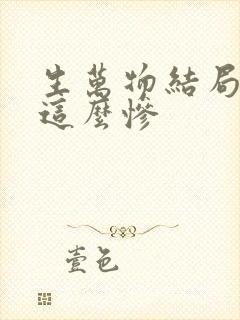 生萬物結局
這麼慘
壹色